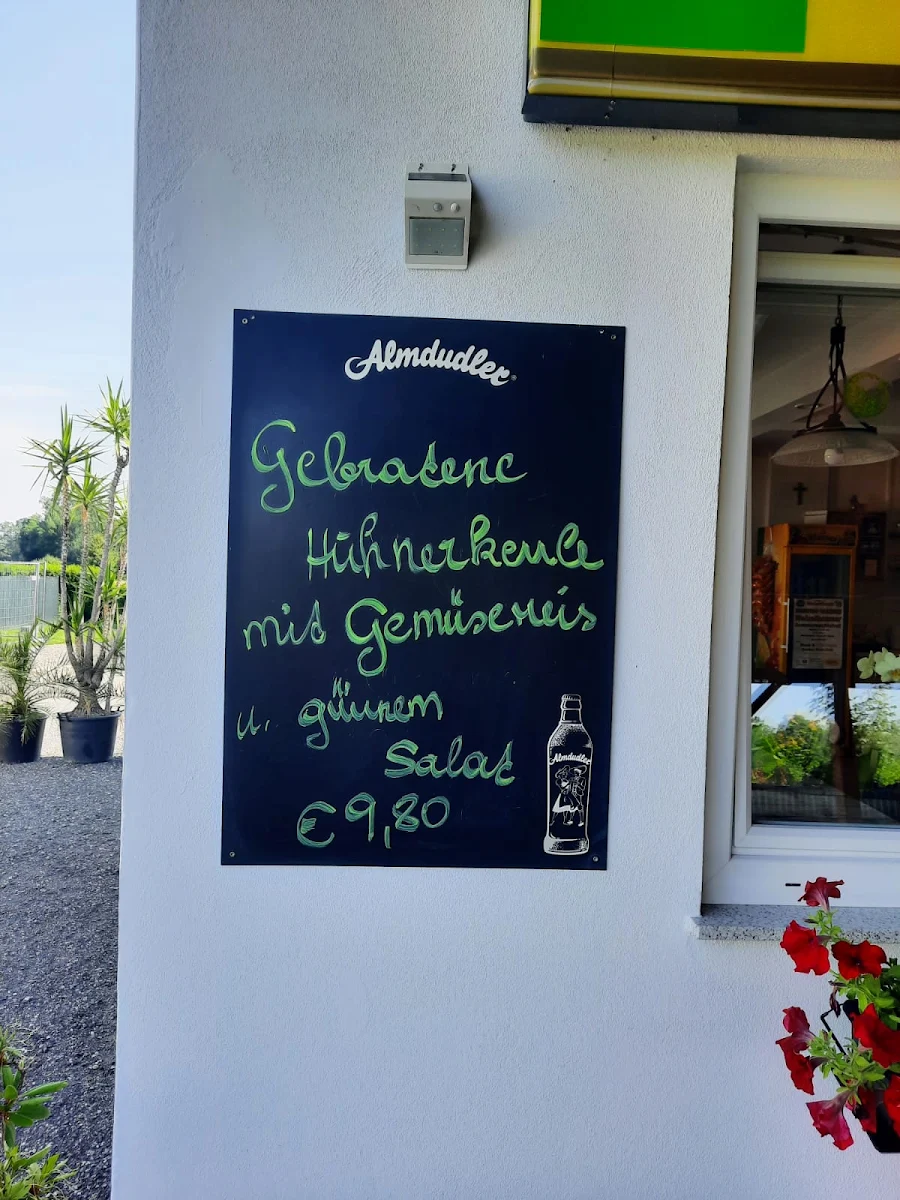 Almdudler
Gebratene
Hühnerkeule
mit Gemüsereis
u. grünem
Salat
€ 9,80
Almdudler